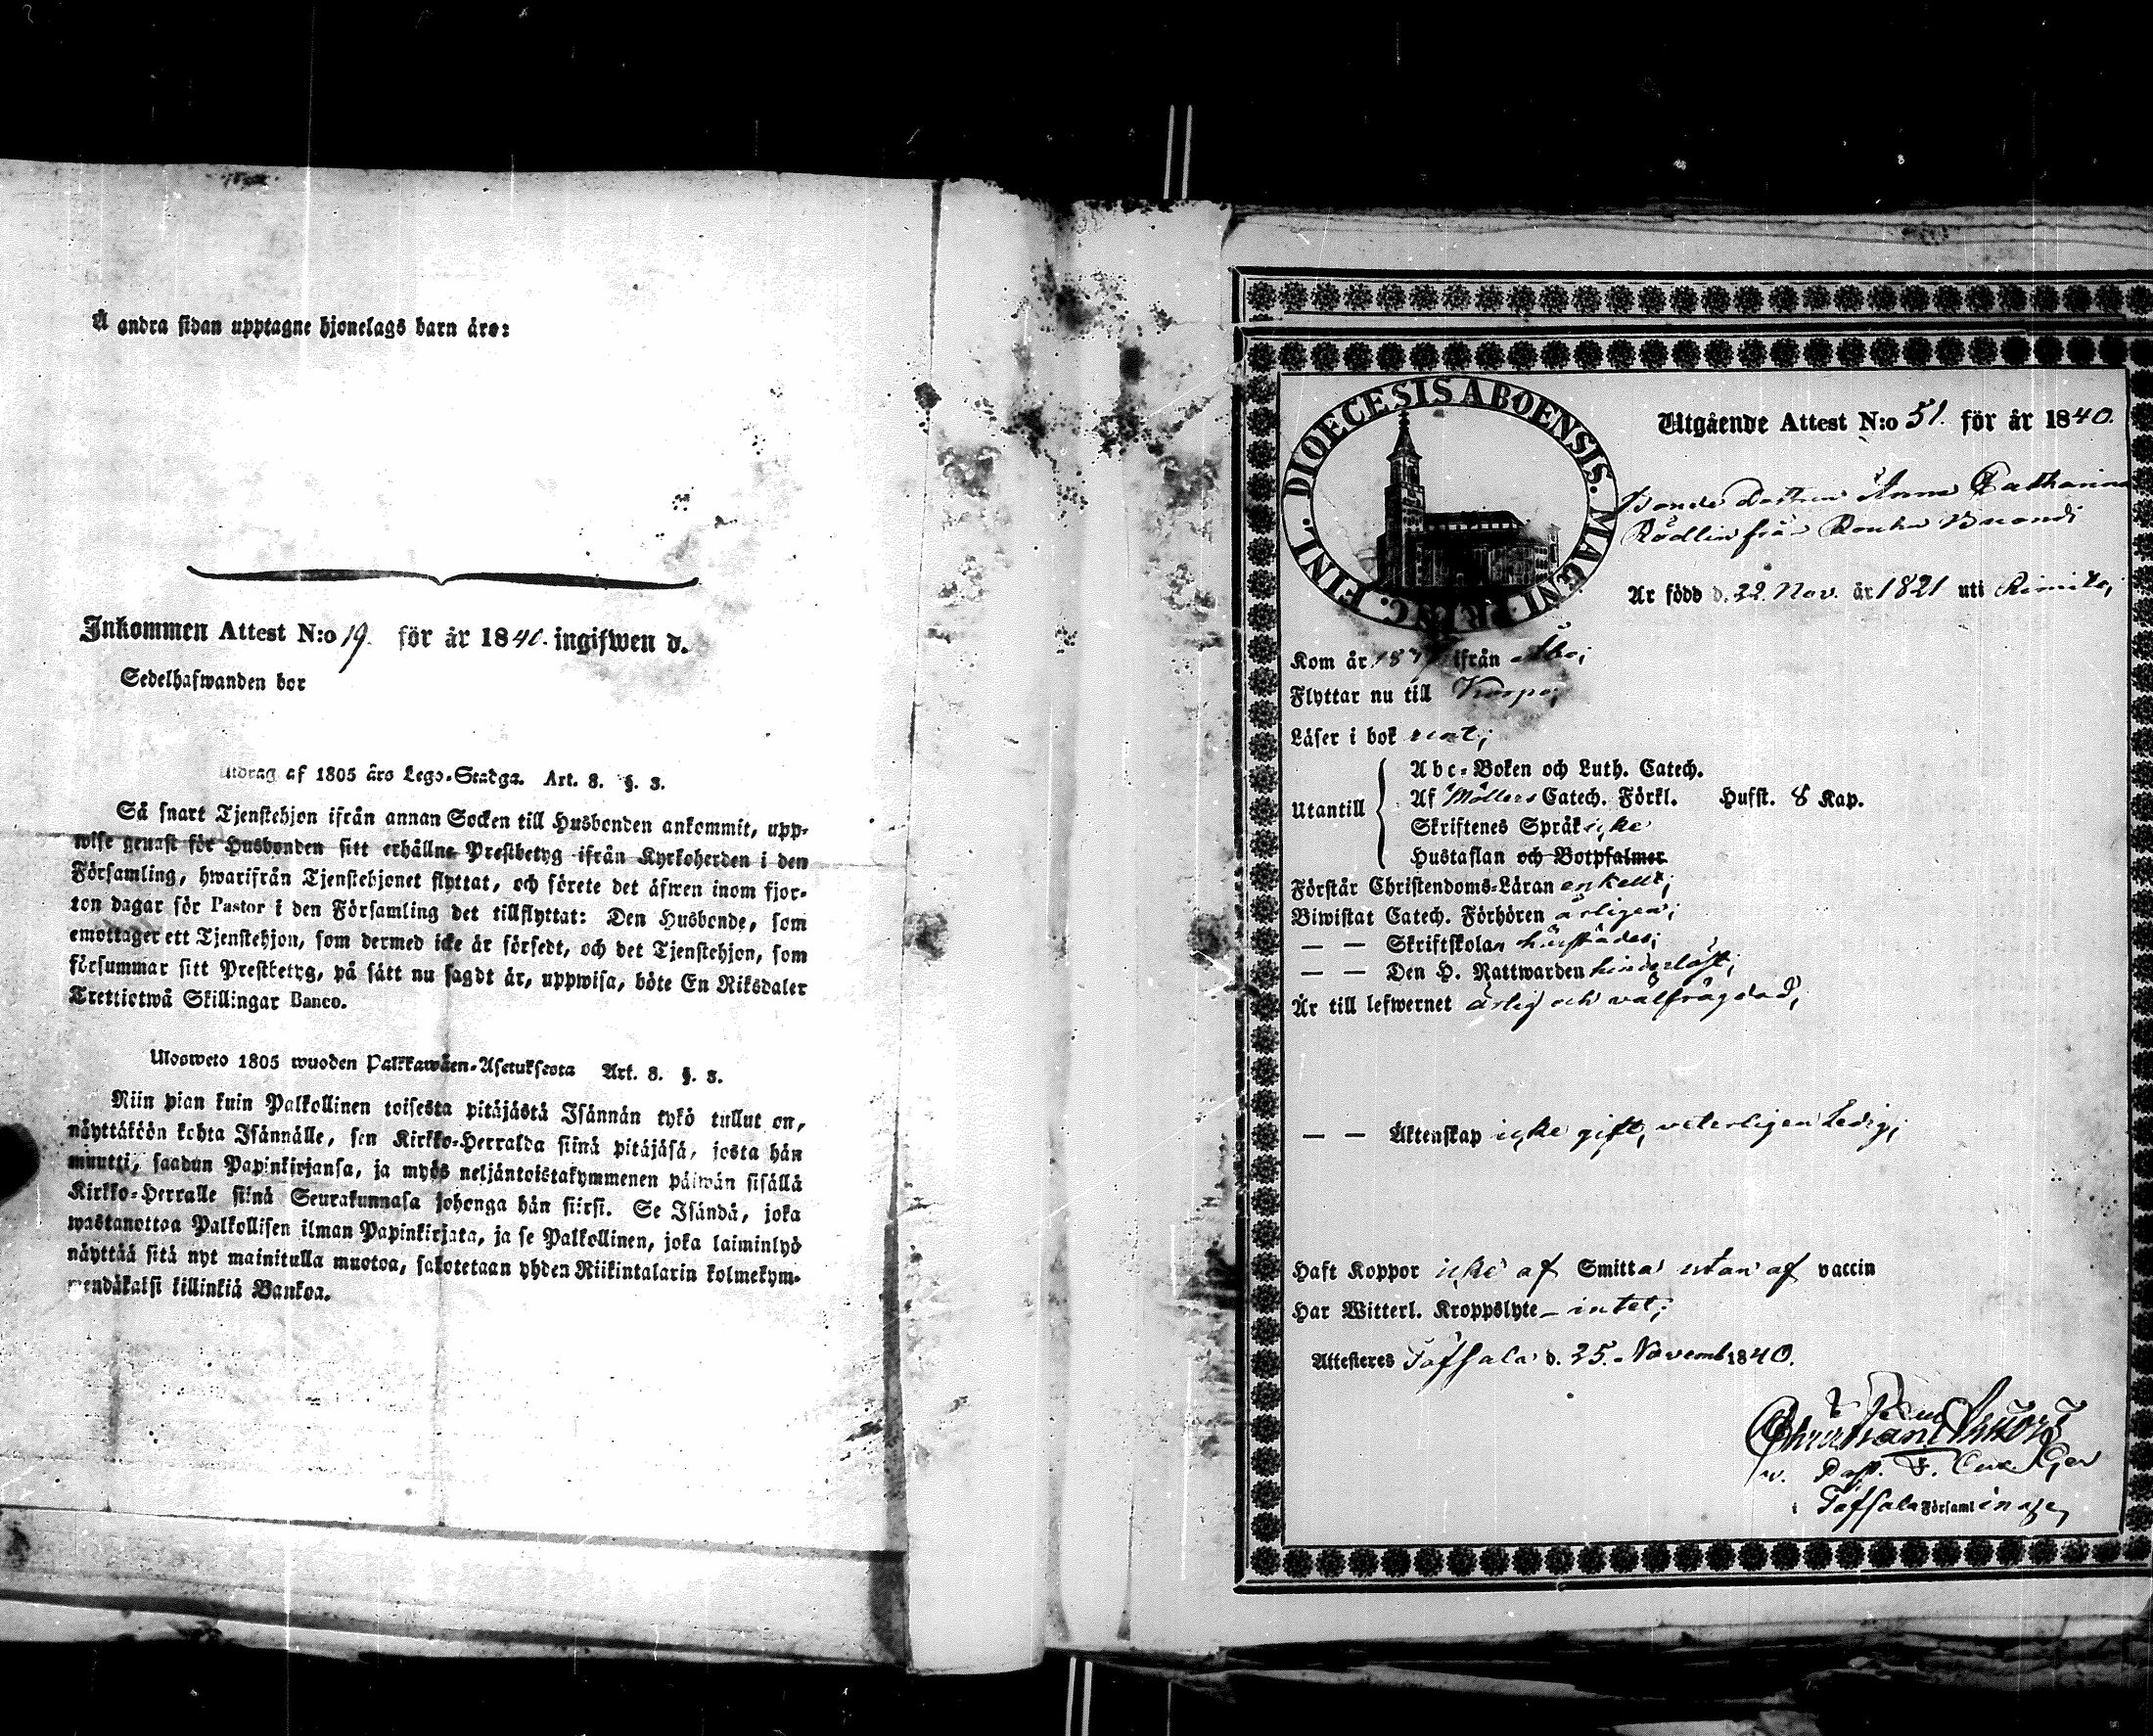 Å andra sidan upptagne hjonelags barn äro:
Inkommen Attest N:o 19. för år 1840. ingifwen d.
Sedelhafwanden bor
Utdrag af 1805 års Lego-Stadga. Art. 8. §. 3.
Så snart Tjenstehjon ifrån annan Socken till Husbonden ankommit, upp-
wise genast för Husbonden sitt erhållne Prestbetyg ifrån Kyrkoherden i den
Församling, hwarifrån Tjenstehjonet flyttat, och förete det äfwen inom fjor-
ton dagar för Pastor i den Församling det tillflyttat: Den Husbonde, som
emottager ett Tjenstehjon, som dermed icke är försedt, och det Tjenstehjon, som
försummar sitt Prestbetyg, på sätt nu sagdt är, uppwisa, böte En Riksdaler
Trettiotwå Skillingar Banco.
Ulosweto 1805 wuoden Palkkawäen-Asetuksesta Art. 8. §. 3.
Niin pian kuin Palkollinen toisesta pitäjästä Isännän tykö tullut on,
näyttäköön kohta Isännälle, sen Kirkko-Herralda siinä pitäjäsä, josta hän
muutti, saadun Papinkirjansa, ja myös neljäntoistakymmenen päiwän sisällä
Kirkko-Herralle siinä Seurakunnasa johonga hän siirsi. Se Isändä, joka
wastanottaa Palkollisen ilman Papinkirjata, ja se Palkollinen, joka laiminlyö
näyttää sitä nyt mainitulla muotoa, sakotetaan yhden Riikintalarin kolmekym-
mendäkaksi killinkiä Bankoa.
DIOECESIS ABOENSIS. MAGNI PRINC. FINL.
Utgående Attest N:o 51. för år 1840.
Bonde Anna Catharina
Rödlin från
Är född d. 22 Nov. år 1821 uti Rimito;
Kom år ifrån Åbo;
Flyttar nu till Korpo;
Läser i bok rent;
Utantill
Abc-Boken och Luth. Catech.
Af Möllers Catech. Förkl. Husst. 8 Kap.
Skriftenes Språk icke
Hustaflan och Botpsalmer
Förstår Christendoms-Läran enkelt;
Biwistat Catech. Förhören årligen;
— — Skriftskolan härstädes;
— — Den H. Nattwarden hinderlöst;
Är till lefwernet ärlig och välfrägdad,
— — Äktenskap icke gift, veterligen Ledig;
Haft Koppor icke af Smitta utan af vaccin
Har Witterl. Kroppslyte – intet;
Attesteres Töfsala d. 25. Novemb 1840.
Christian
v. Past.
i Töfsala Församlinge